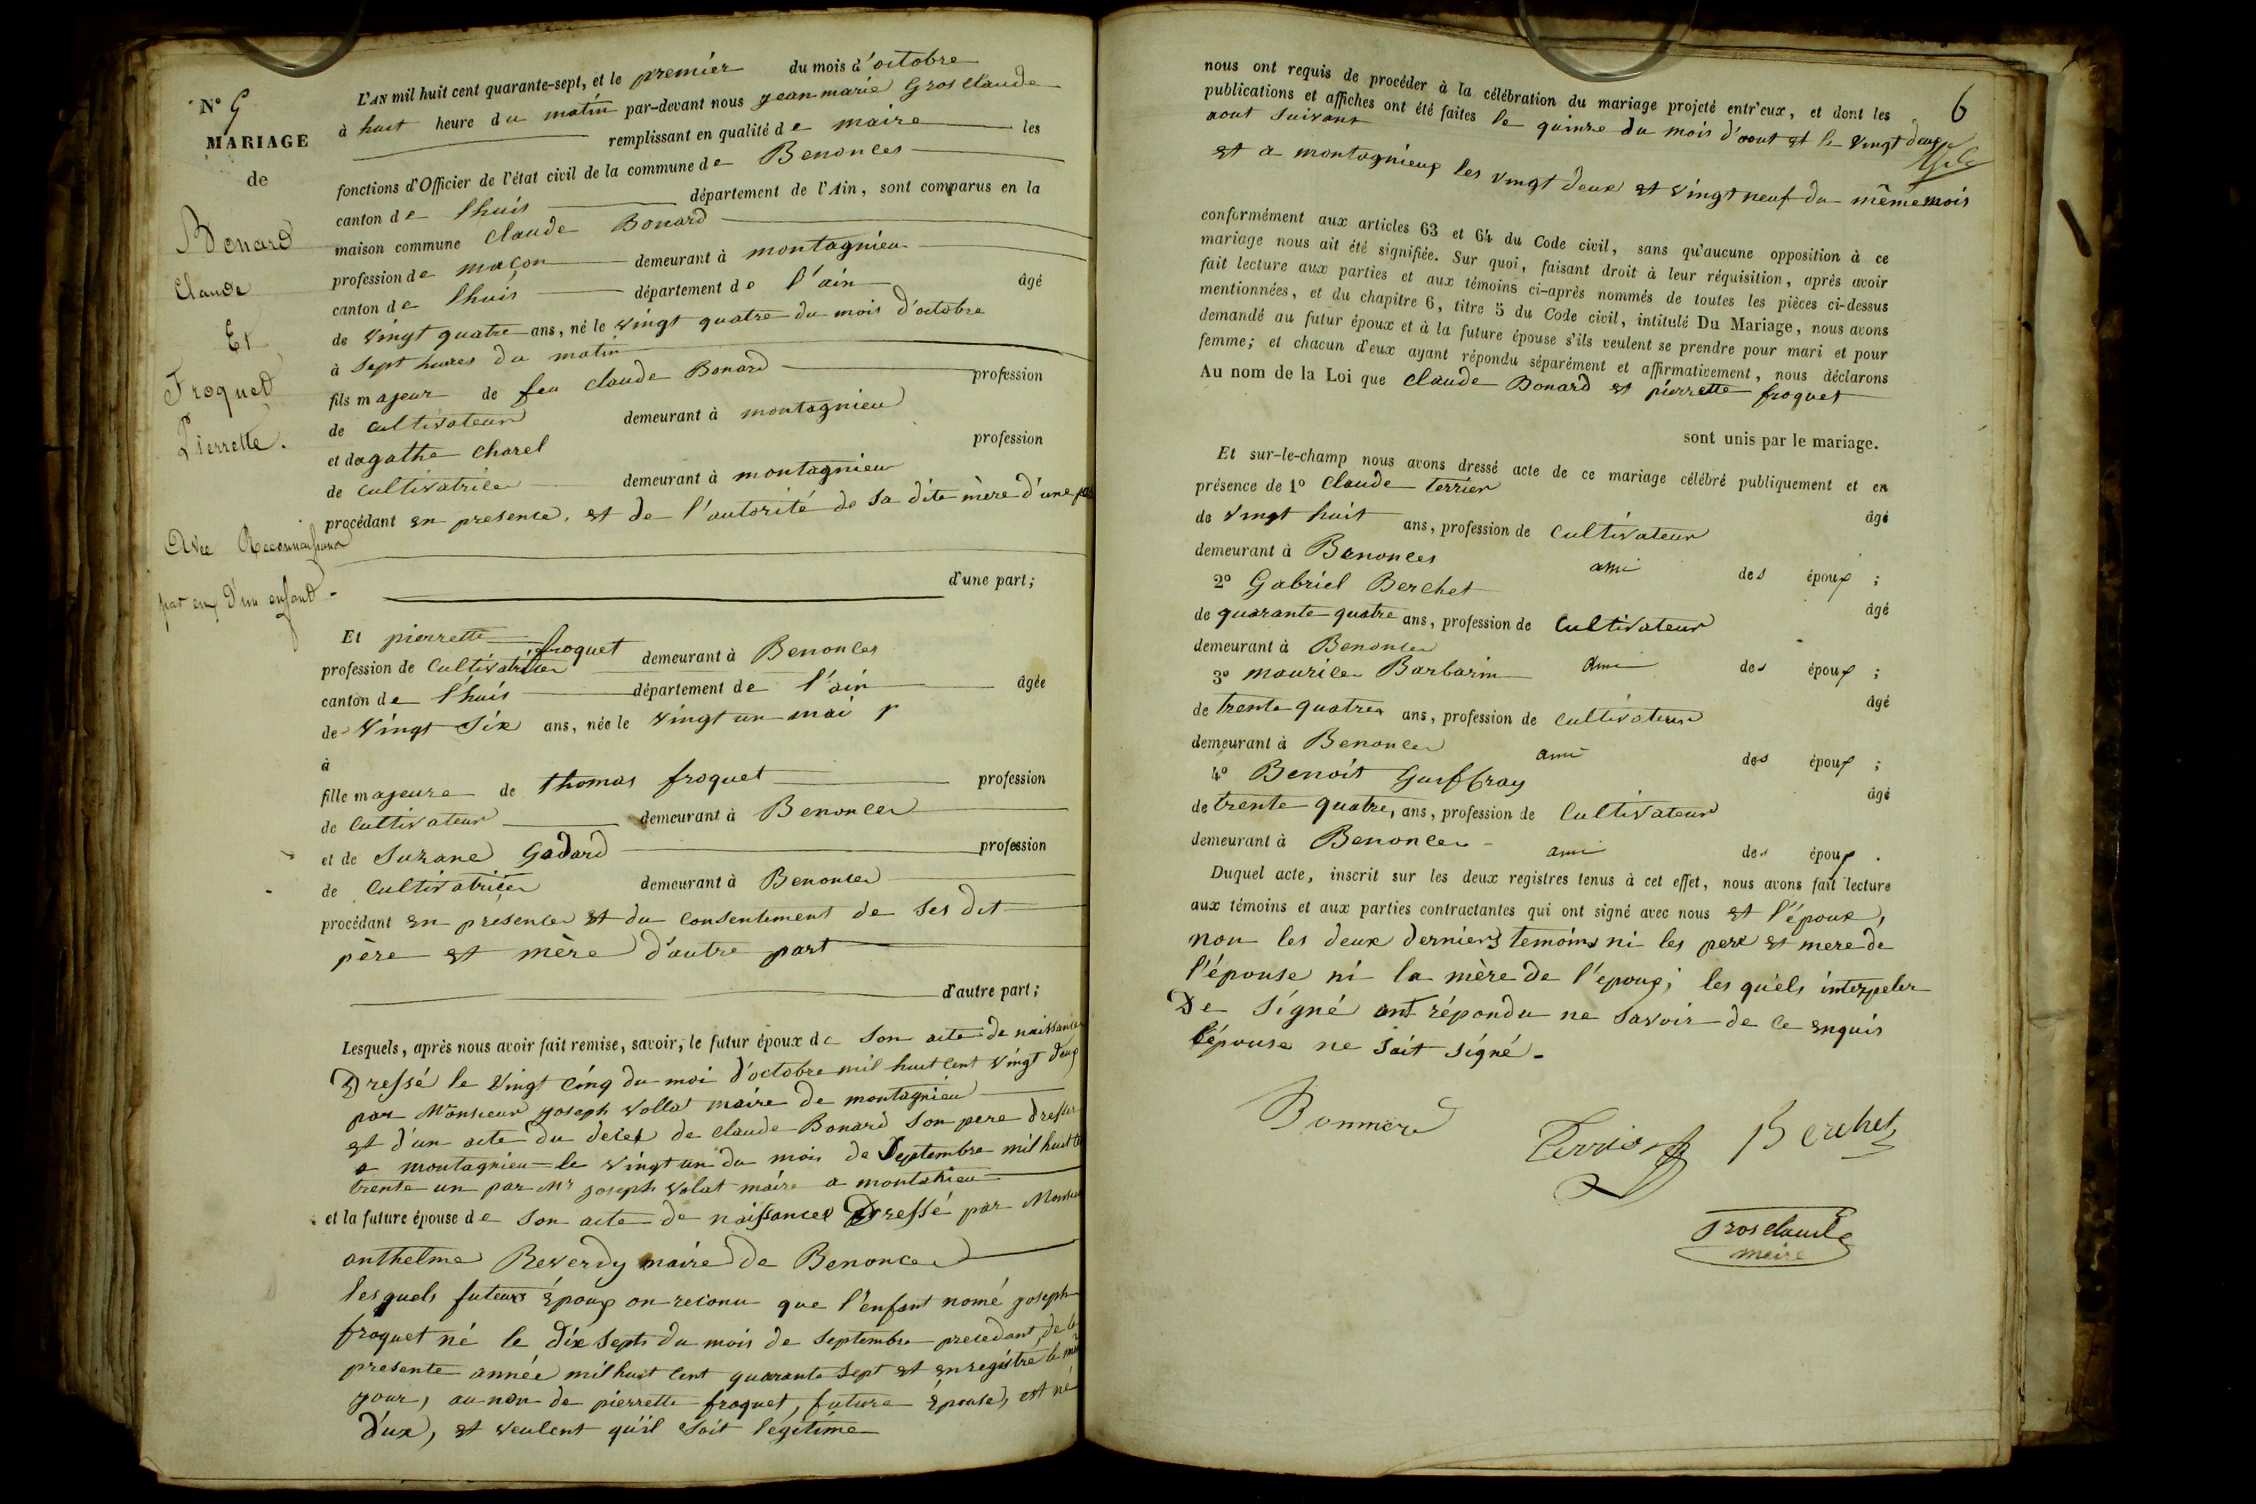 N° 9
MARIAGE
de
Bonard
Claude
Et
Froquet
Pierrette.
Avec Reconnaissance
par eux d'un enfant -
L'AN mil huit cent quarante-sept, et le premier du mois d'octobre
à huit heure du matin par-devant nous jean marie Grosclaude
remplissant en qualité de maire les
fonctions d'Officier de l'état civil de la commune de Benonces
canton de lhuis département de l'Ain, sont comparus en la
maison commune Claude Bonard
profession de maçon demeurant à montagnieu
canton de lhuis département de l'ain âgé
de vingt quatre ans, né le vingt quatre du mois d'octobre
à sept hures du matin
fils majeur de feu claude Bonard profession
de cultivateur demeurant à montagnieu
et dagathe charel profession
de cultivatrice demeurant à montagnieu
procédant en presence, et de l'autorité de sa dite mère d'une
d'une part;
Et pierrette froquet
profession de cultivatrice demeurant à Benonces
canton de l'huis département de l'ain âgée
de vingt six ans, née le vingt un mai
à
fille majeure de thomas froquet profession
de cultivateur demeurant à Benonces
et de suzane Gadard profession
de cultivatrice demeurant à Benonces
procédant en presence et du consentement de ses dit
père et mère d'autre part
d'autre part;
Lesquels, après nous avoir fait remise, savoir, le futur époux de son acte de naissance
Dressé le vingt cinq du moi d'octobre mil huit cent vingt deux
par Monsieur joseph vollat maire de montagnieu
et d'un acte du deces de claude Bonard son pere dresser
a montagnieu le vingt un du mois de Septembre mil huit
trente un par Mr joseph volat maire a montahieu
et la future épouse de son acte de naissance Dressé par
anthelme Reverdy maire de Benonces
lesquels futeurs époux on reconu que l'enfant nomé joseph
froquet né le dix sept du mois de septembre precedant de la
presente année mil huit cent quarante sept et enregistré le
jour, au non de pierrette froquet, future épouse, est né
d'ux, et veulent qu'il soit légitime
6
nous ont requis de procéder à la célébration du mariage projeté entr'eux, et dont les
publications et affiches ont été faites le quinze du mois d'aout et le vingt deux
aout suivant
et a montagnieux les vingt deux et vingt neuf du même mois
conformément aux articles 63 et 64 du Code civil, sans qu'aucune opposition à ce
mariage nous ait été signifiée. Sur quoi, faisant droit à leur réquisition, après avoir
fait lecture aux parties et aux témoins ci-après nommés de toutes les pièces ci-dessus
mentionnées, et du chapitre 6, titre 5 du Code civil, intitulé Du Mariage, nous avons
demandé au futur époux et à la future épouse s'ils veulent se prendre pour mari et pour
femme; et chacun d'eux ayant répondu séparément et affirmativement, nous déclarons
Au nom de la Loi que claude Bonard et pierrette froquet
sont unis par le mariage.
Et sur-le-champ nous avons dressé acte de ce mariage célébré publiquement et en
présence de 1° Claude terrier
âgé
de vingt huit ans, profession de cultivateur
demeurant à Benonces ami des époux ;
2° Gabriel Berchet
âgé
de quarante quatre ans, profession de cultivateur
demeurant à Benonces ami des époux ;
3° maurice Barbarin
âgé
de trente quatre ans, profession de cultivateur
demeurant à Benonces ami des époux ;
4° Benoit
âgé
de trente quatre, ans, profession de cultivateur
demeurant à Benonces ami des époux .
Duquel acte, inscrit sur les deux registres tenus à cet effet, nous avons fait lecture
aux témoins et aux parties contractantes qui ont signé avec nous et l'époux,
non les deux derniers temoins ni les pere et mere de
l'épouse ni la mère de l'epoux; les quels interpeler
De signé ont répondu ne savoir de ce enquis
l'épouse ne sait signé -
Berchet
Grosclaude
maire